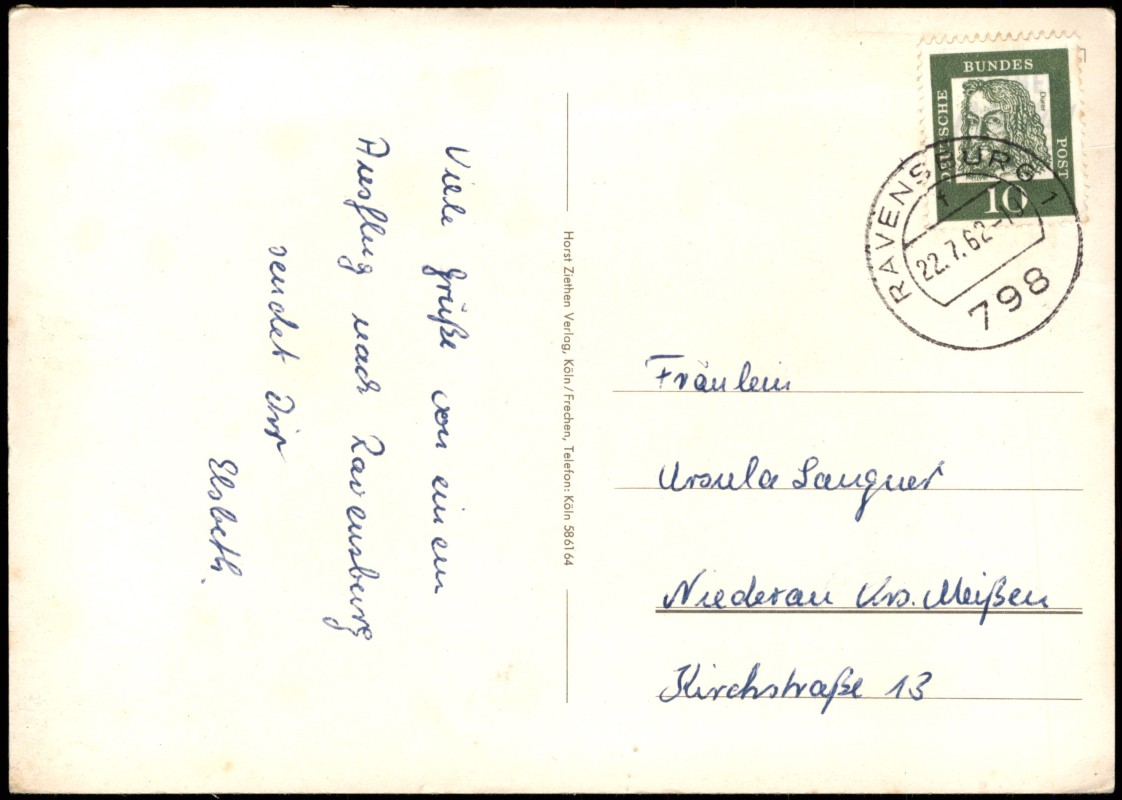 Viele Grüße von einem
Ausflug nach Ravensburg
sendet Dir
Elsbeth.
Horst Ziethen Verlag, Köln/Frechen, Telefon: Köln 586164
DEUTSCHE
BUNDES
POST
Dürer
10
RAVENSBURG 1
f
22.7.62-1
798
Fräulein
Ursula Langner
Niederau Krs. Meißen
Kirchstraße 13